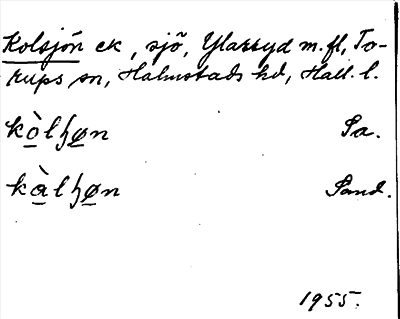 Kolsjön ek, sjö, Ylabryd m.fl, To-
rups sn, Halmstads hd, Hall. l.
kòlɧøn Sa.
kàlɧøn Sand.
1955.